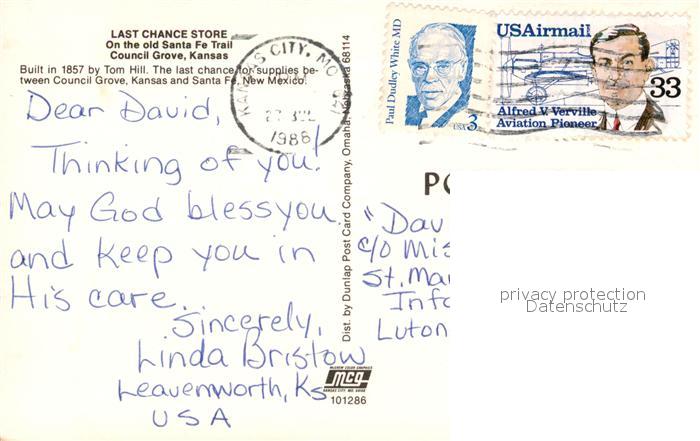 LAST CHANCE STORE
On the old Santa Fe Trail
Council Grove, Kansas
Built in 1857 by Tom Hill. The last chance for supplies be-
tween Council Grove, Kansas and Santa Fe, New Mexico.
Dear David,
Thinking of you!
May God bless you
and keep you in
His care.
Sincerely,
Linda Bristow
Leavenworth, Ks
USA
Dist. by Dunlap Post Card Company, Omaha, Nebraska 68114
McGREW COLOR GRAPHICS
MCG
KANSAS CITY, MO.
101286
KANSAS CITY, MO
1986
Paul Dudley White MD
USA 3
USAirmail
33
Alfred V. Verville
Aviation Pioneer
PO
"Dav
c/o Mis
St. Mar
Info
Luton
privacy protection
Datenschutz